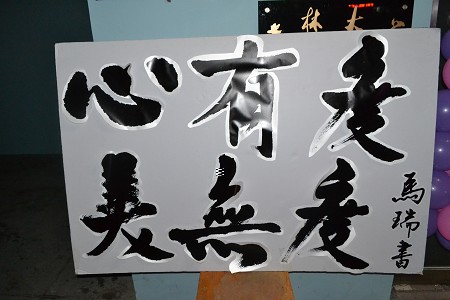 林大
心有度
美無度
馬瑞書